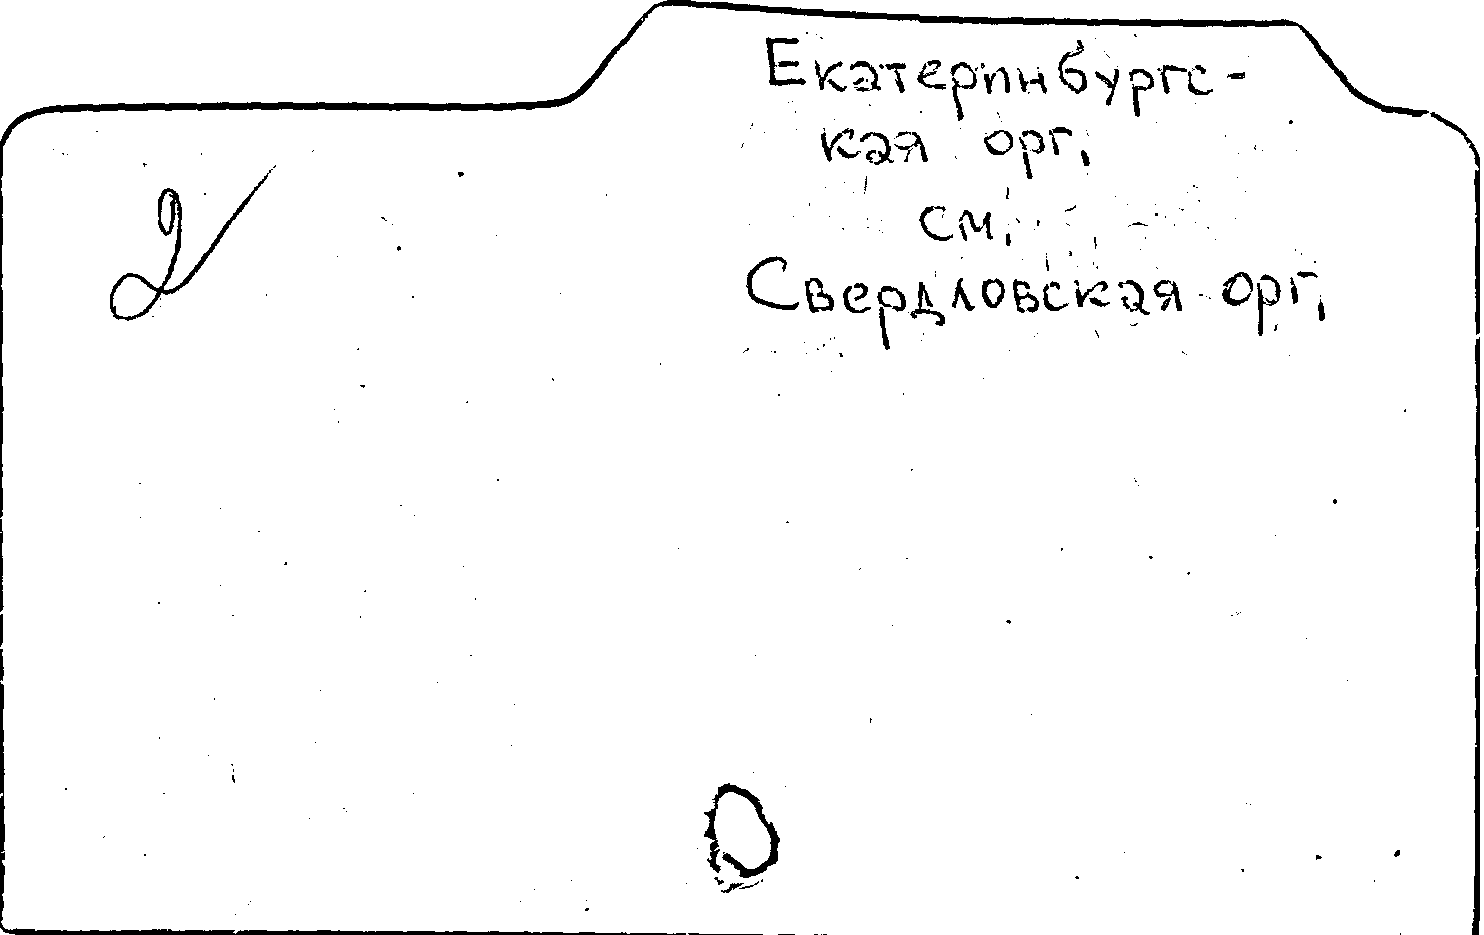 Екатеринбургс-
кая орг.
см.
Свердловская орг.